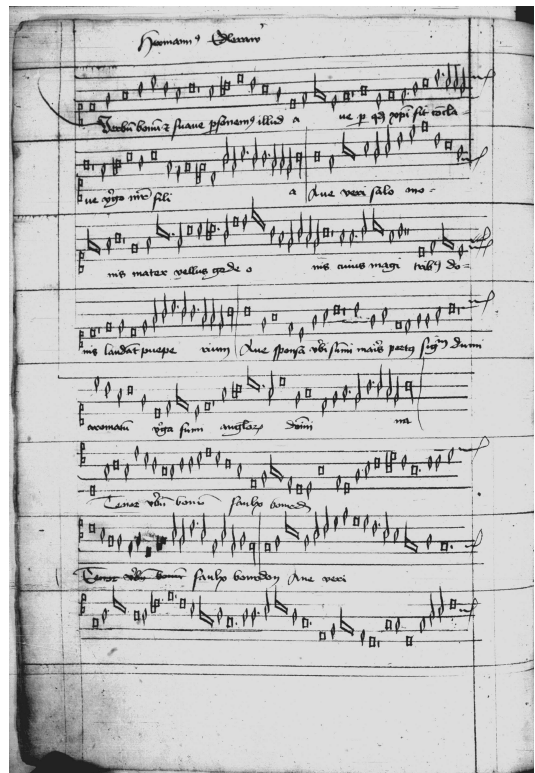 Hermannus Edleraw
Verbū bonū & suave psonemꝰ illud a ve p qd xp̄i fit cōcla-
ve v̓go mr̄ fili a Aue veri salo mo-
nis mater vellus gede o nis cuius magi tribꝰ do-
nis laudāt puepe rium Aue sponsa v̓bi sūmi maris portꝰ signū dumi
aromatū v̓ga fumi angloꝝ dn̄i na
Tenor v̓bū bonū faulxo bourdon
Tenor v̓bū bonū faulxo bourdon Aue veri